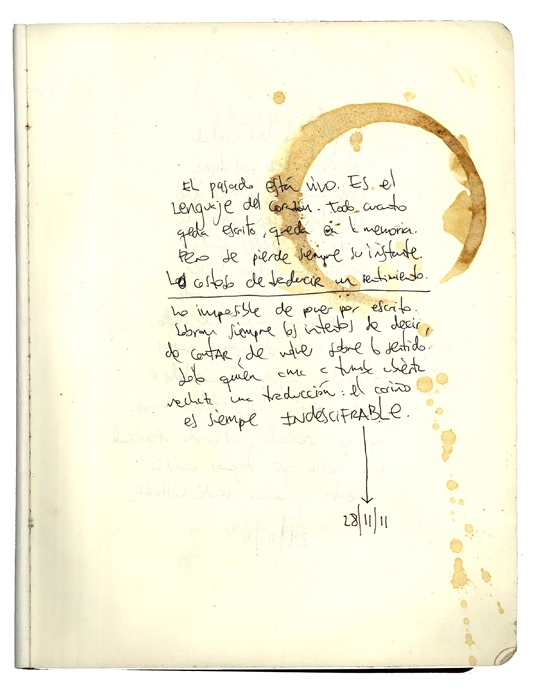 El pasado está vivo. Es el
lenguaje del corazón. Todo cuanto
queda escrito, queda en la memoria.
Pero se pierde siempre su instante.
Lo costoso de traducir un sentimiento.
Lo imposible de poner por escrito.
Sobran siempre los intentos de decir,
de contar, de volver sobre lo sentido.
Sólo quien ama a tumba abierta
rechaza una traducción: el cariño
es siempre INDESCIFRABLE.
28/11/11